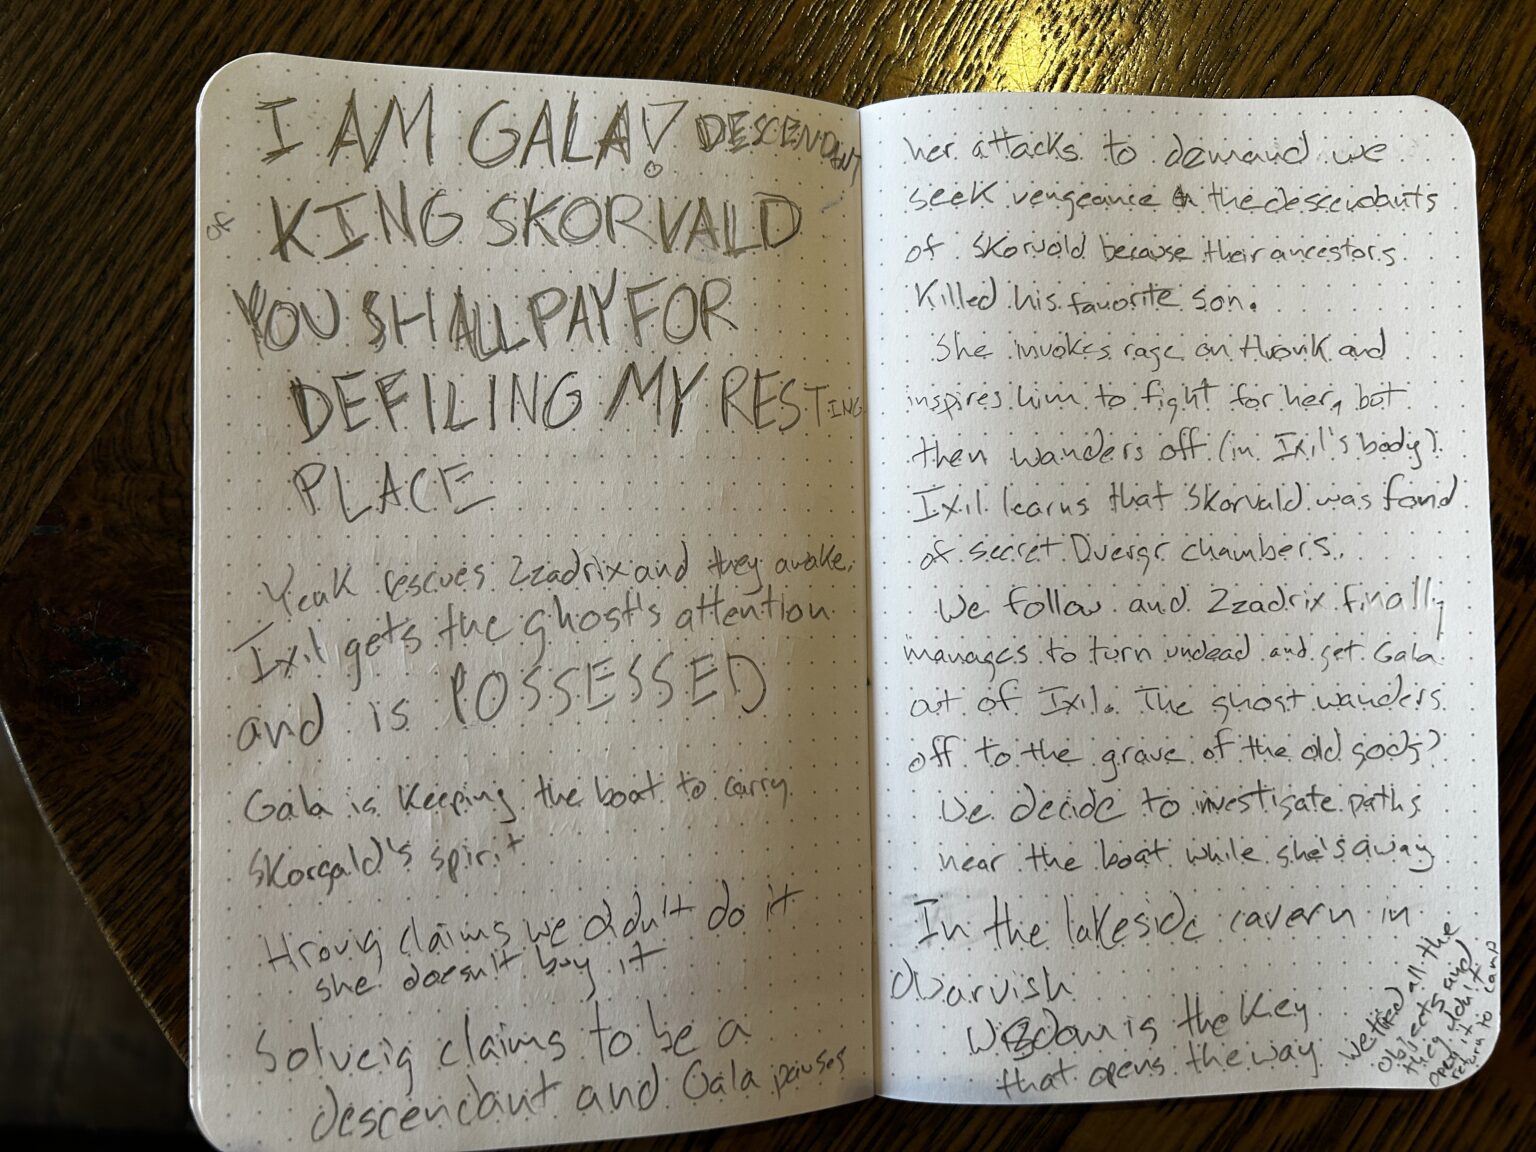 I AM GALA! DESCENDANT
of KING SKORVALD
YOU SHALL PAY FOR
DEFILING MY RESTING
PLACE
Yeak rescues Zzadrix and they awake.
Ixil gets the ghost's attention
and is POSSESSED
Gala is keeping the boat to carry
Skorgald's spirit
claims we didn't do it
she doesn't buy it
Solveig claims to be a
descendant and Gala pauses
her attacks to demand we
seek vengeance on the descendants
of Skorvald because their ancestors
killed his favorite son.
She invokes rage on and
inspires him to fight for her, but
then wanders off (in Ixil's body).
Ixil learns that Skorvald was fond
of secret Dvergr chambers.
We follow and Zzadrix finally
manages to turn undead and get Gala
out of Ixil. The ghost wanders
off to the grave of the old gods?
We decide to investigate paths
near the boat while she's away
In the lakeside cavern in
Dwarvish
Wisdom is the key
that opens the way
We tried all the
objects and
they didn't
open it
return to camp